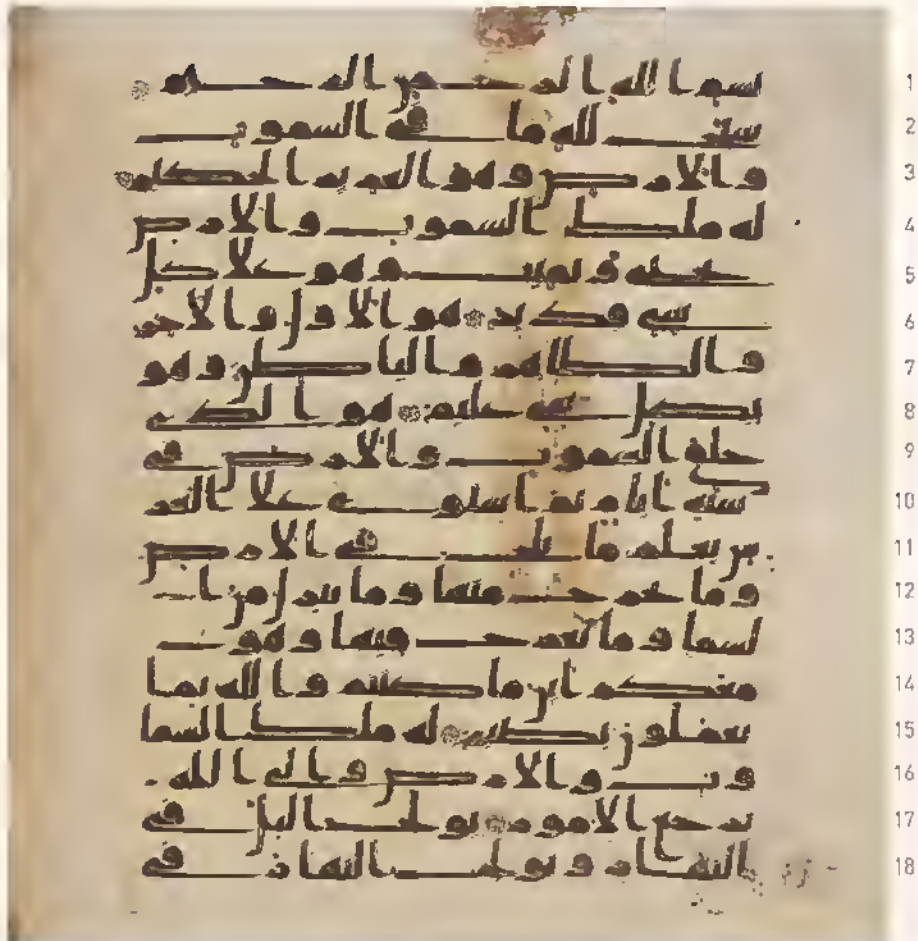 1 بسم الله الرحمن الرحيم
2 سبح لله ما في السموت
3 والارض وهو العزيز الحكيم
4 له ملك السموت والارض
5 يحيي ويميت وهو على كل
6 شيء قدير هو الاول والاخر
7 والظهر والباطن وهو
8 بكل شيء عليم هو الذي
9 خلق السموت والارض في
10 ستة ايام ثم استوى على العر
11 ش يعلم ما يلج في الارض
12 وما يخرج منها وما ينزل من ا
13 لسما وما يعرج فيها وهو
14 معكم اين ما كنتم والله بما
15 تعملون بصير له ملك السما
16 وت والارض والى الله
17 ترجع الامور يولج اليل في
18 النهار ويولج النهار في